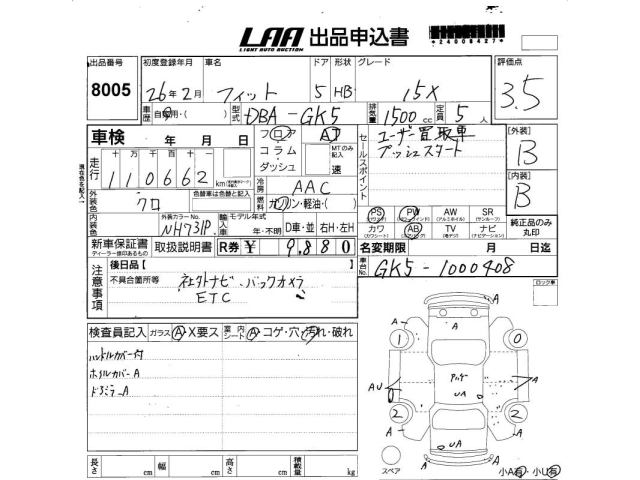 LAA 出品申込書
LIGHT AUTO AUCTION
*24008427*
出品番号 初度登録年月 車名 ドア 形状 グレード 評価点
8005 26年2月 フィット 5 HB 15X 3.5
車歴 自家用・( ) 型式 DBA-GK5 排気量 1500cc 定員 5人
車検 年 月 日
フロア AT
コラム・ MTのみ記入
ダッシュ 速
セールスポイント
ユーザー買取車
プッシュスタート
[外装] B
[内装] B
現在色を記入
走行 十万 万 千 百 十
110662 km
冷房 AAC
外装色 クロ 色替車は色替と記入
燃料 ガソリン・軽油・( )
内装色 外装カラーNo. NH731P
輸入車 モデル年式 年・不明 D車・並 右H・左H
PS PW AW SR
(パワステ) (パワーウィンド) (アルミホイル) (サンルーフ)
カワ AB TV ナビ
(カワシート) (エアバッグ) (電デジ) (ナビゲーション)
純正品のみ丸印
新車保証書 取扱説明書 R券 ¥ 9,880
ディーラー印のあるもの
名変期限 月 日迄
車台No. GK5-1000408
注意事項 後日品 [ ]
不具合箇所等 社外ナビ、バックカメラ
ETC
ロック車
検査員記入 ガラス A・X要ス 室内シート A・コゲ・穴・汚れ・破れ
ハンドルカバー付
ホイルカバーA
ドアミラーA
A A
1 0
A
アンテナ
AU UA A
2 2
UA
A A
スペア
小A有・小U有
長さ cm 幅 cm 高さ cm 積載量 kg